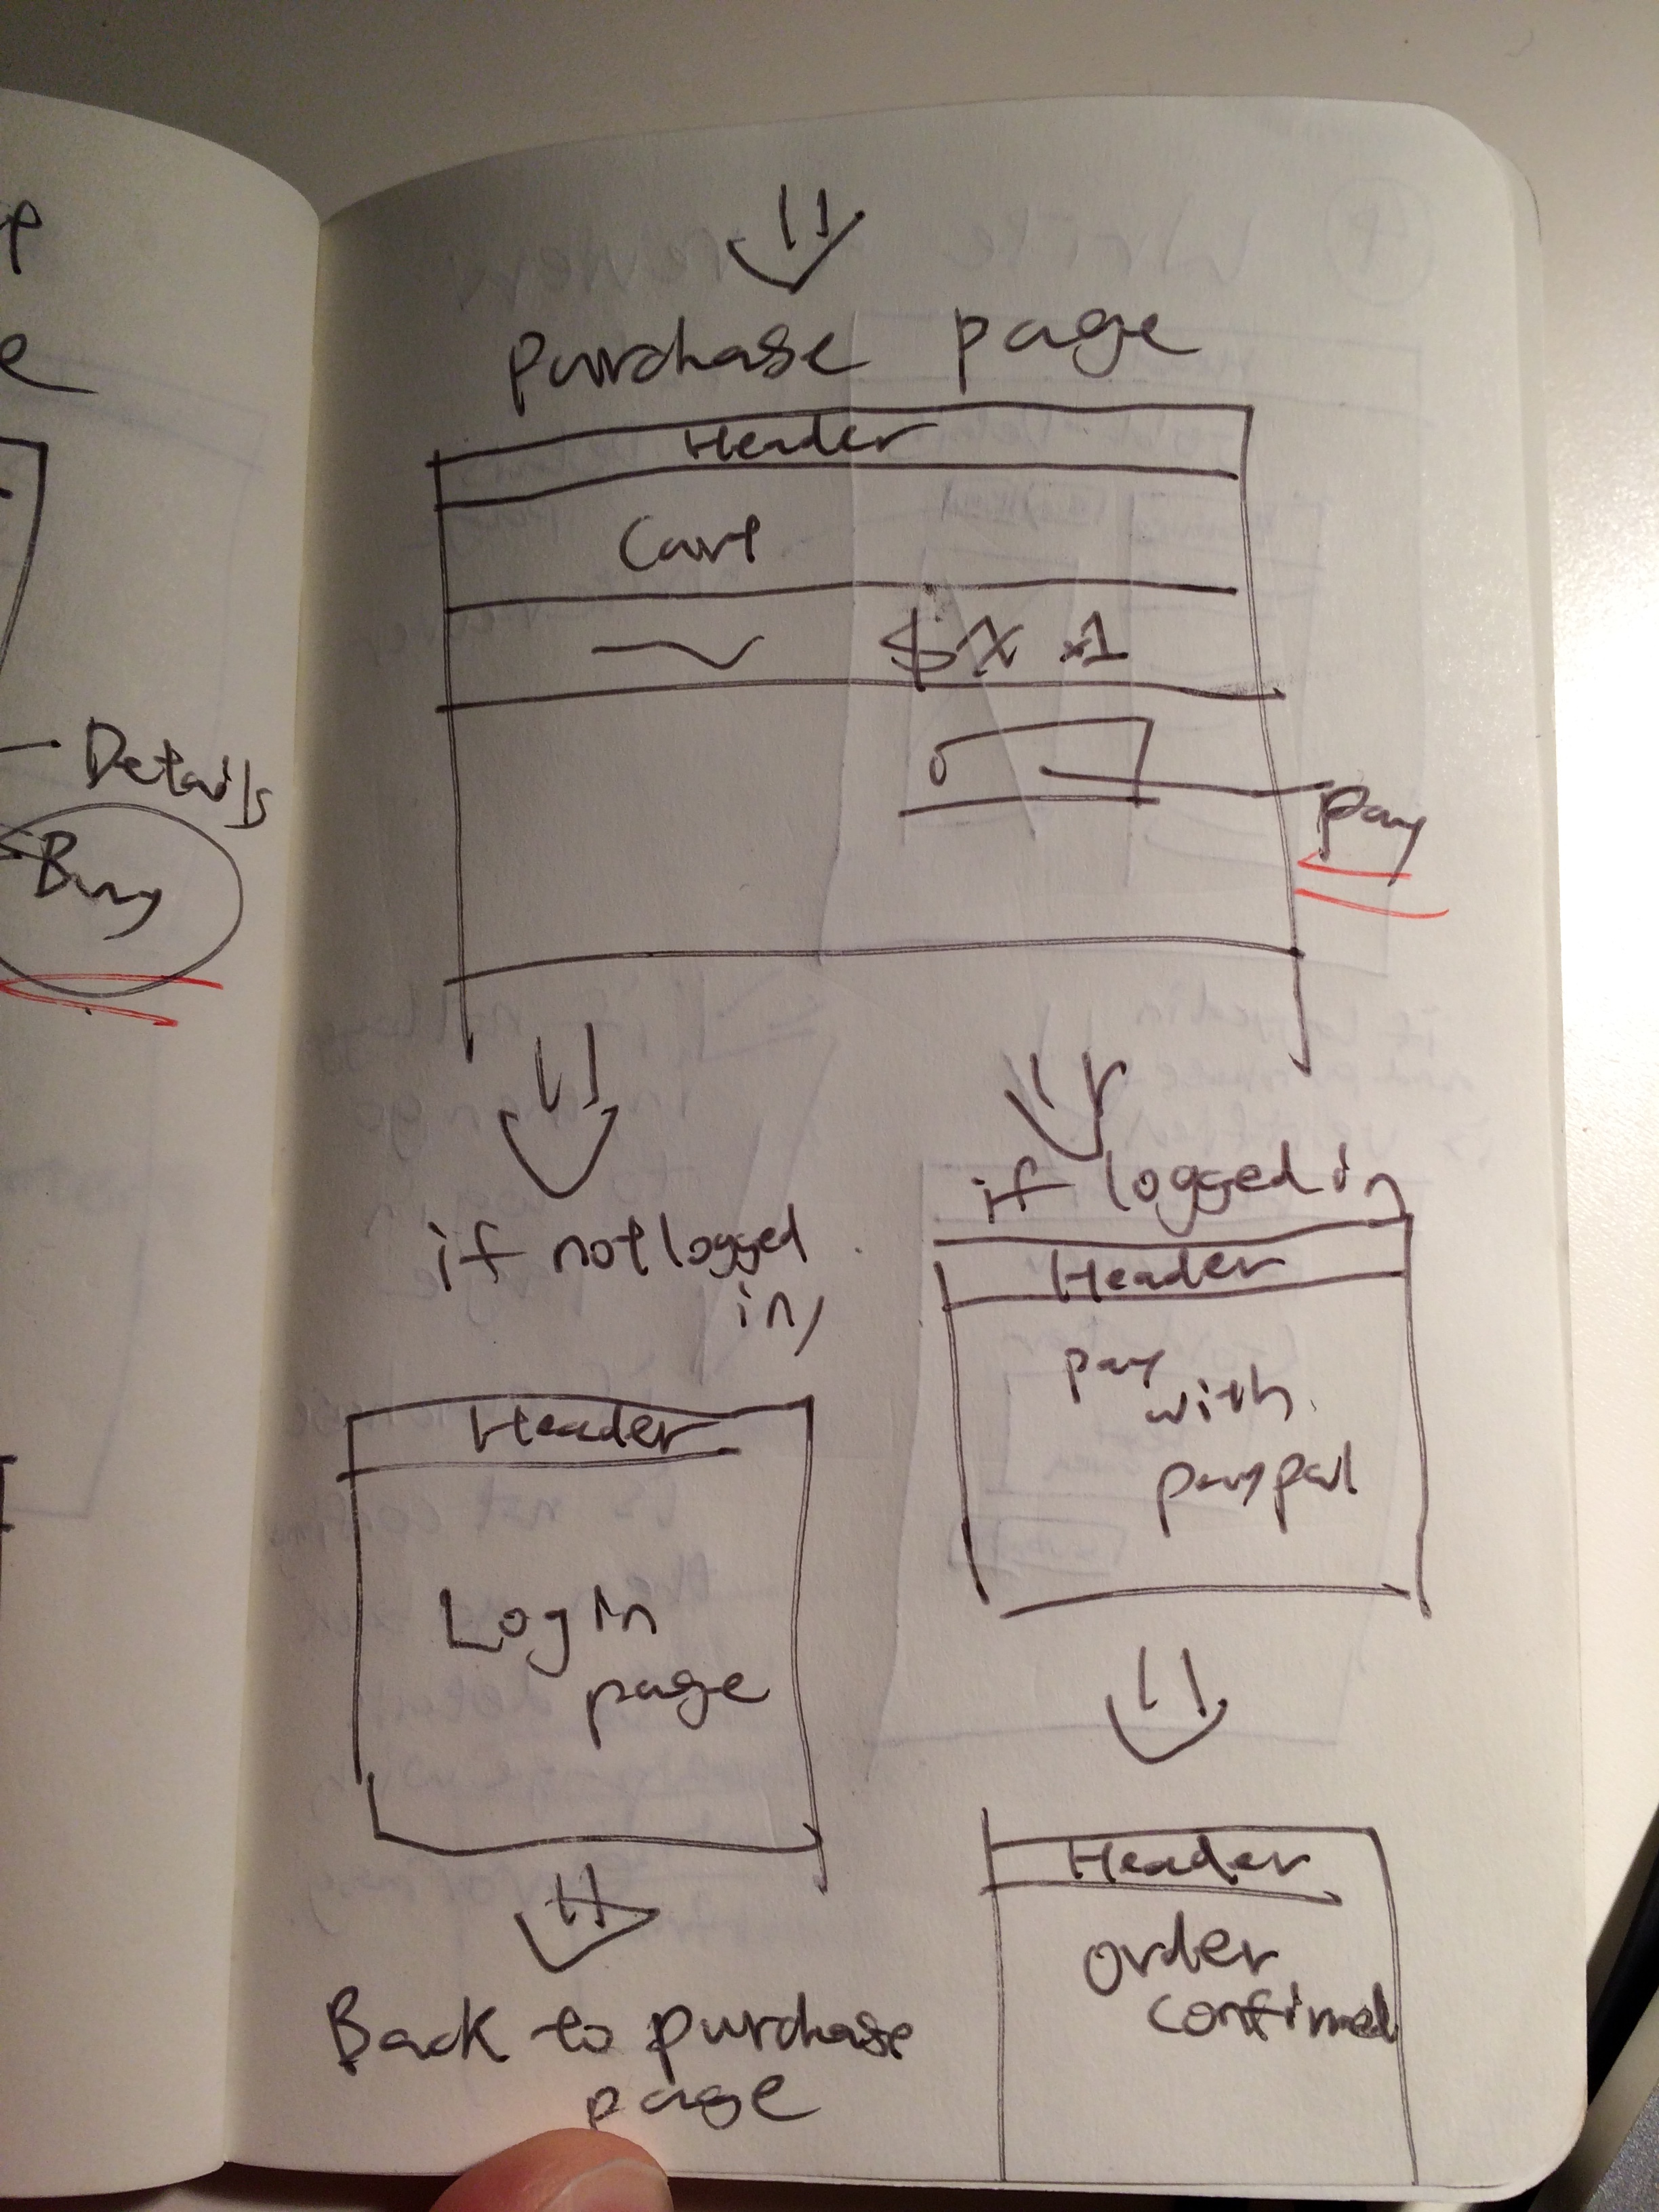 Details
Buy
purchase page
Header
Cart
$X x1
pay
if not logged
in,
Header
Login
page
Back to purchase
page
if logged in
Header
pay
with
paypal
Header
order
confirmed